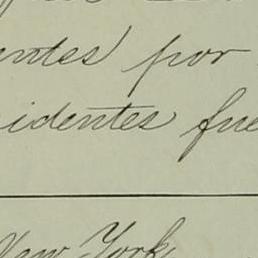 entes por
identes fue
New York